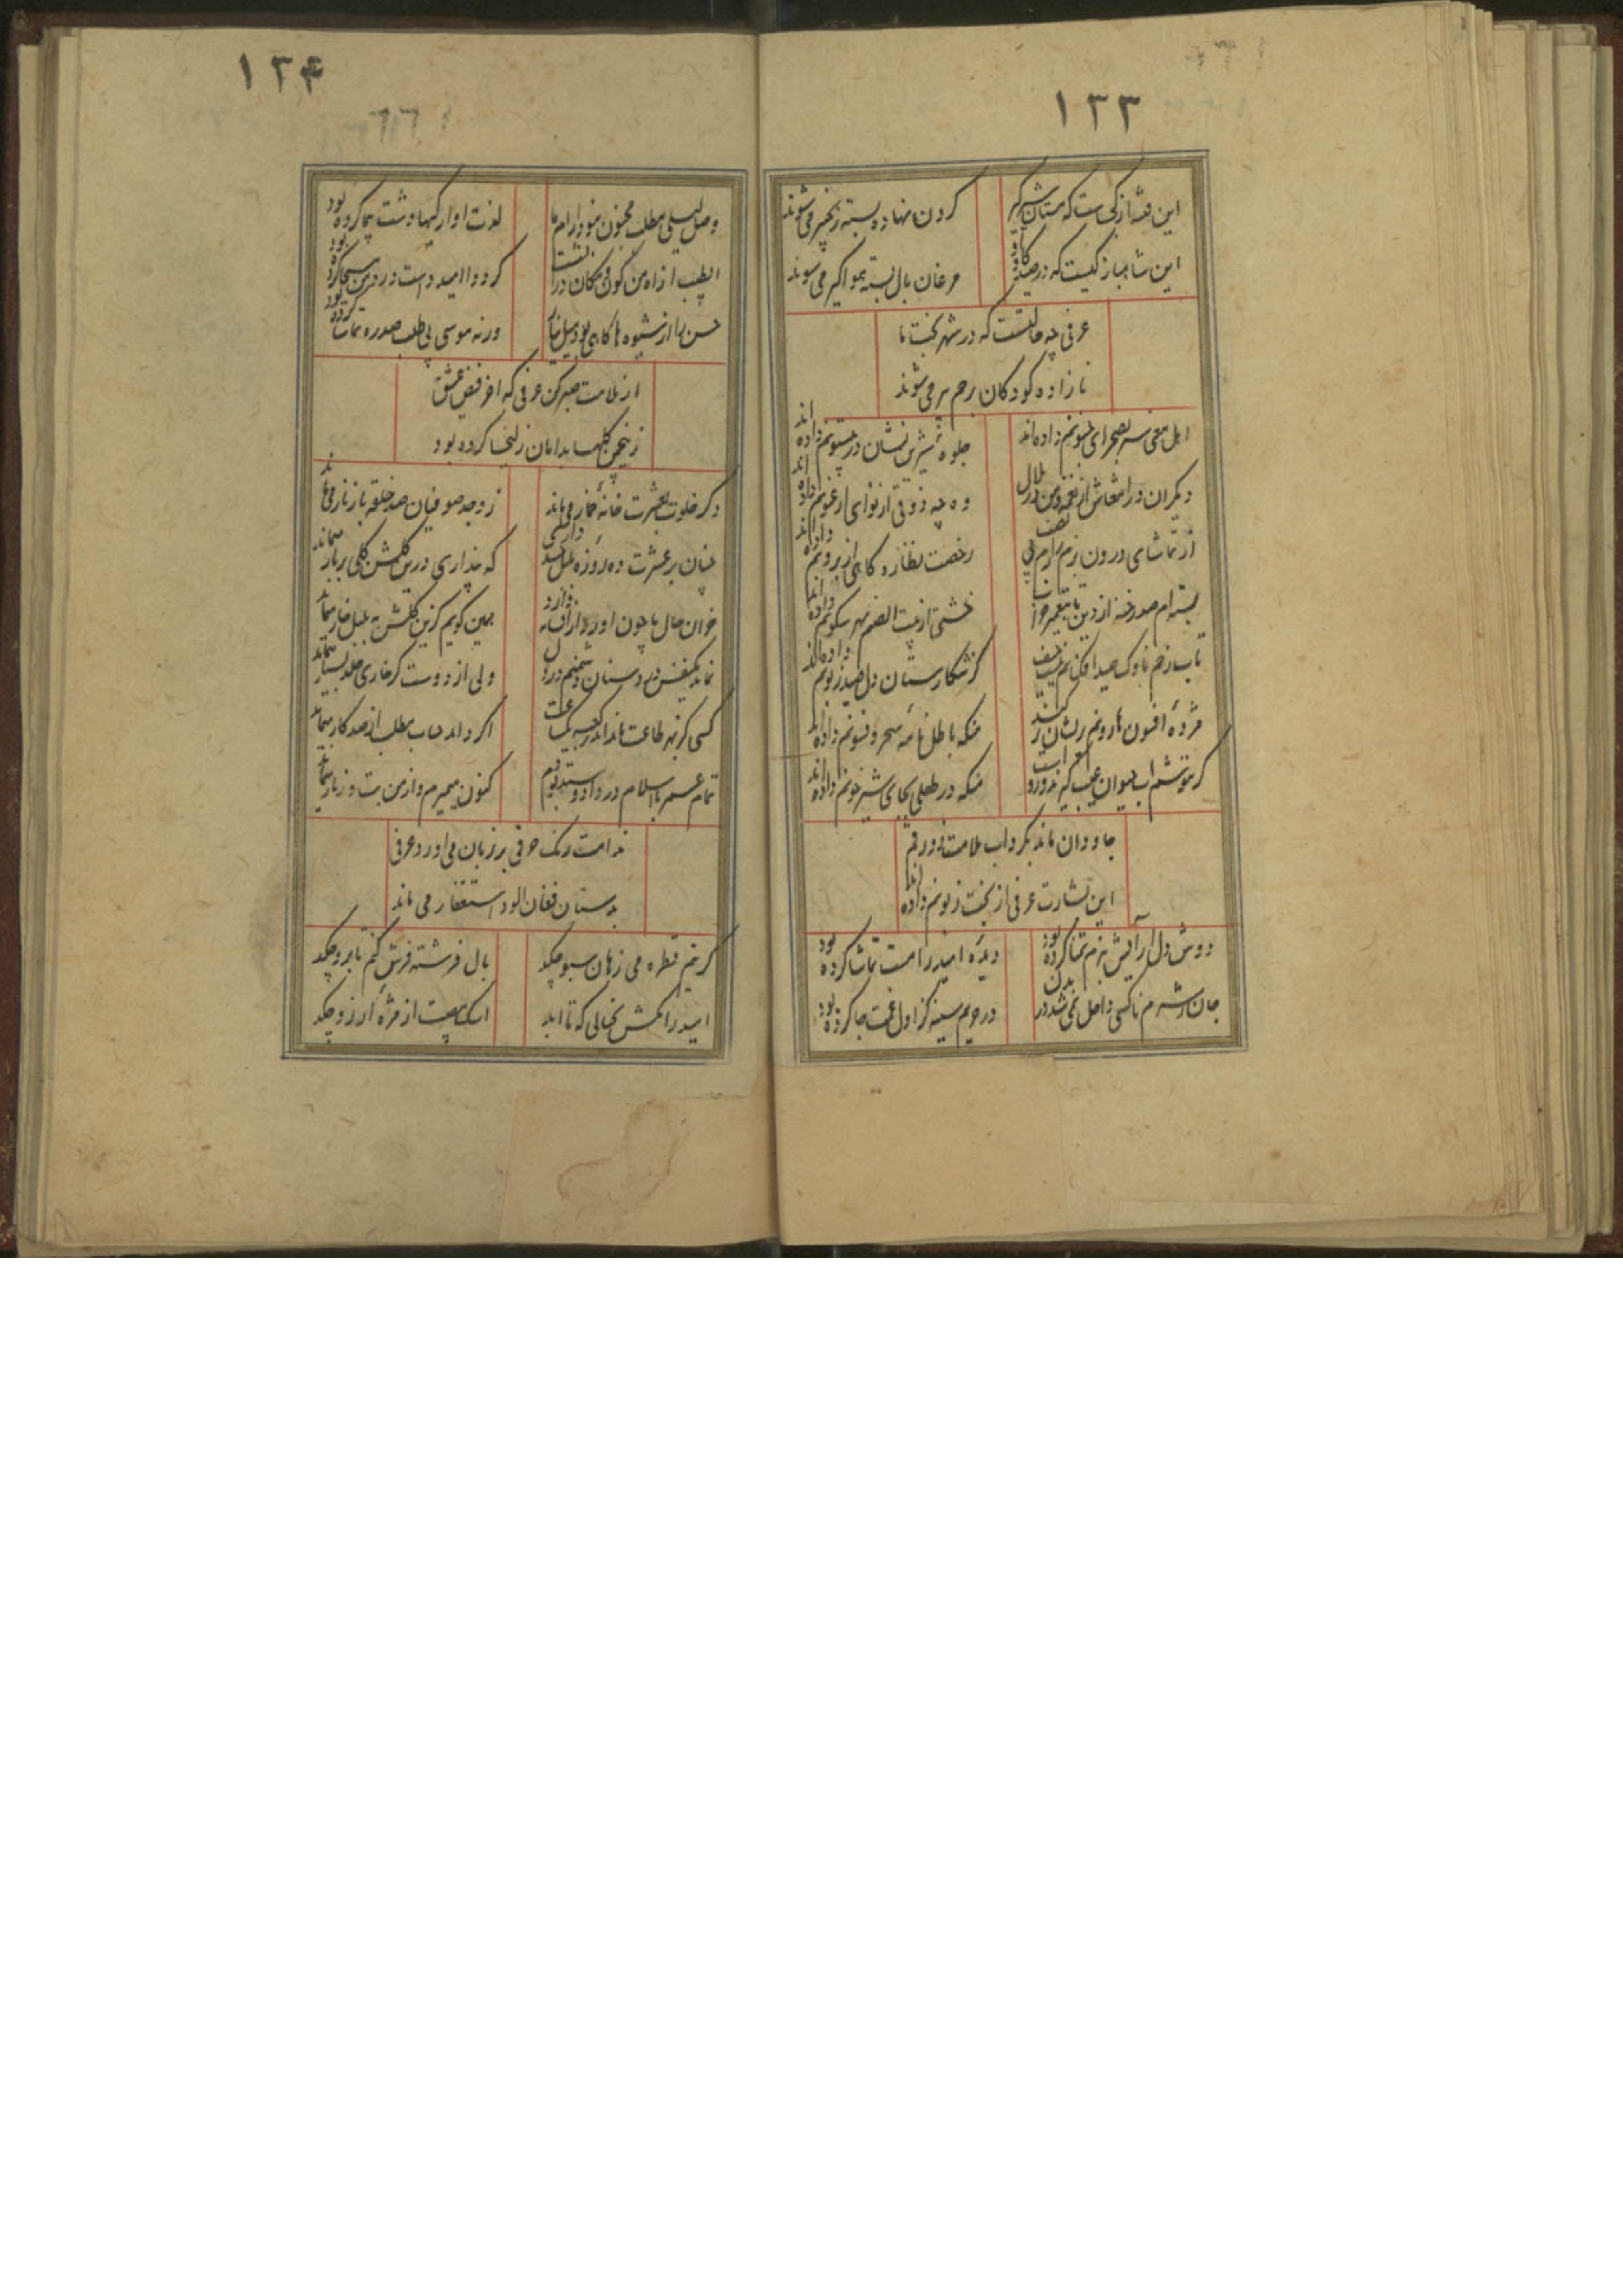 ۱۳۳
این فتنه از کی ست که مستان شیرگیر
گردن نهاده بسته زنجیر می شوند
این شاهباز کیست که در صیدگاه او
مرغان بال بسته هواگیر می شوند
عرفی چه حالتست که در شهر بخت ما
نازاده کودکان برحم پیر می شوند
اهل معنی سر بصحرای جنونم داده اند
جلوه شیرین نشان در بیستونم داده اند
دیگران در انتعاش از نغمه و من در ملال
وه چه ذوقی از نوای ارغنونم داده اند
از تماشای درون بزم
رخصت نظاره گاهی از برونم داده اند
بسته ام صد رخنه از دین تا بتعمیر
خشتی از بیت الصنم بهر سکونم داده اند
تاب زخم ناوک صید افکنانم نیست حیف
کز شکارستان دل صید زبونم داده اند
مژده افسون هاروتم
منکه باطل نامه سحر و فسونم داده اند
گر ننوشم آب حیوان عیب
منکه در طفلی بجای شیر خونم داده اند
جاودان ماند بگرداب ملامت زورقم
این بشارت عرفی از بخت زبونم داده اند
دوش دل آرایش بزم تمنا کرده بود
دیده امید را مست تماشا کرده بود
جان ز شرم ناکسی داخل نمی شد در بدن
در حریم سینه کز اول غمت جا کرده بود
۱۳۴
وصل لیلی مطلب مجنون نبود
لذت آوارگیها دشت پیما کرده بود
الطبیب از راه من
کرد و امید است درد من مسیحا کرده بود
حسن را از شیوه ها گاهی بود میل نیاز
ورنه موسی بی طلب صد ره تماشا کرده بود
از ملامت صبر کن عرفی که آخر فیض عشق
زین چمن گلها بدامان زلیخا کرده بود
دگر خلوت بعشرت خانه خمار می ماند
ز وجد صوفیان صد حلقه با زنار می ماند
چنان بر عشرت ده روزه دل
که پنداری درین گلشن گلی پربار میماند
همین گویم کزین گلشن به بلبل خار میماند
نماند یکنفس در دوستان و دشمنم درد دل
ولی از دوست گر خاری خلد بسیار میماند
کسی کز بهر طاعت ماند اندر کعبه یک ساعت
اگر داند حساب مطلب از صد کار میماند
تمام عمر با اسلام در داد و ستد بودم
کنون میمیرم و از من بت و زنار میماند
ندامت رنگ حرفی بر زبان می آورد عرفی
بدستان فغان آلود استغفار می ماند
گر نیم قطره می ز دهان سبو چکد
بال فرشته فرش کنم تا برو چکد
امید را مکش بخیالی که تا ابد
اشک مصیبت از مژه آرزو چکد